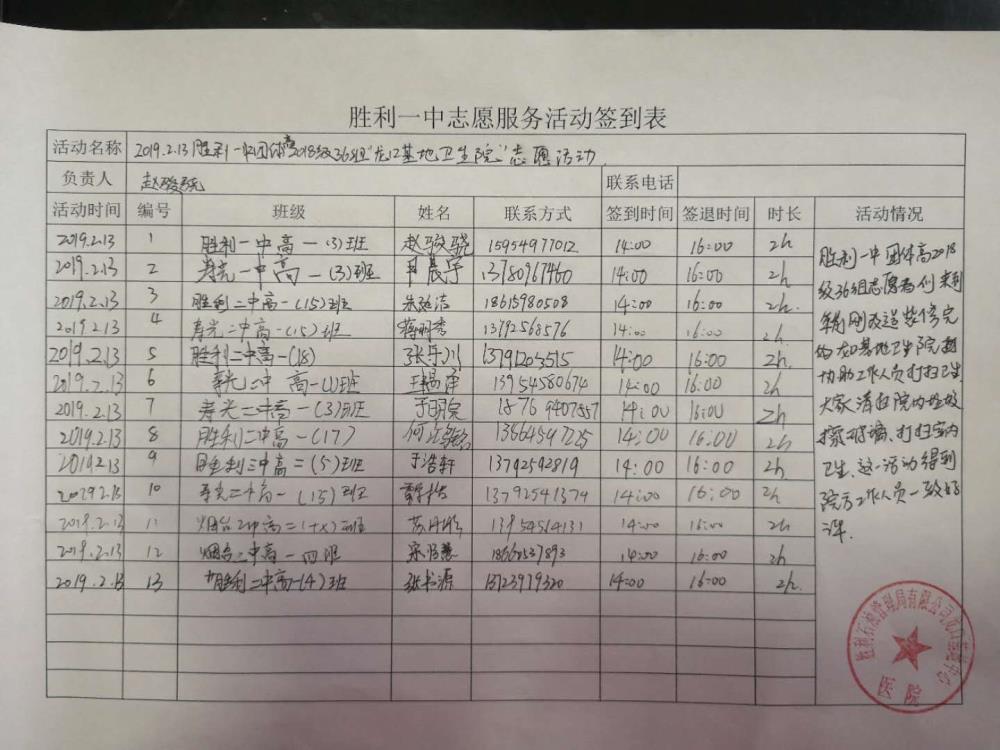 胜利一中志愿服务活动签到表
活动名称 2019.2.13胜利一中团体高2018级36组"龙口基地卫生院"志愿活动.
负责人 赵骏骁 联系电话
活动时间 编号 班级 姓名 联系方式 签到时间 签退时间 时长 活动情况
2019.2.13 1 胜利一中高一(3)班 赵骏骁 15954977012 14:00 16:00 2h
2019.2.13 2 寿光一中高一(3)班 晨宇 13780967460 14:00 16:00 2h
2019.2.13 3 胜利二中高一(15)班 18615980508 14:00 16:00 2h.
2019.2.13 4 寿光二中高一(15)班 蒋明秀 13792568576 14:00 16:00 2h
2019.2.13 5 胜利二中高一(18) 张乐川 13791203515 14:00 16:00 2h
2019.2.13 6 寿光二中高一(1)班 13954580674 14:00 16:00 2h
2019.2.13 7 寿光二中高一(3)班 于明 1876 9407557 14:00 16:00 2h
2019.2.13 8 胜利二中高一(17) 何 13664547225 14:00 16:00 2h
2019.2.13 9 胜利三中高二(5)班 于浩轩 13792592819 14:00 16:00 2h
2019.2.13 10 寿光二中高一(15)班 13792541374 14:00 16:00 2h
2019.2.13 11 烟台二中高二(十x)班 苏 13954514131 14:00 16:00 2h
2019.2.13 12 烟台二中高一四班 宋 18660537893 14:00 16:00 2h
2019.2.13 13 胜利二中高一(4)班 张书源 13723979320 14:00 16:00 2h.
胜利一中团体高2018
级36组志愿者们来到
年前刚改造装修完
的龙口基地卫生院
协助工作人员打扫卫生
大家清扫院内垃圾
擦玻璃、打扫室内
卫生.这一活动得到
院方工作人员一致好
评.
胜利石油管理局有限公司龙口
医院